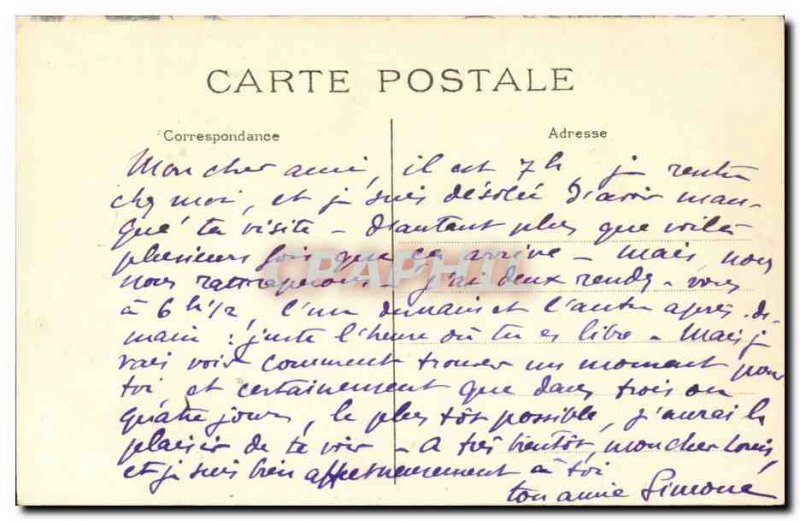 CARTE POSTALE
Correspondance
Adresse
Mon cher ami, il est 7h, je rentre
chez moi, et je suis désolée d'avoir man-
qué ta visite - d'autant plus que voilà
plusieurs fois que ça arrive - mais, nous
nous rattraperons - j'ai deux rendez-vous
à 6h 1/2, l'un demain et l'autre après-de-
main : juste l'heure où tu es libre - Mais je
vais voir comment trouver un moment pour
toi et certainement que dans trois ou
quatre jours, le plus tôt possible, j'aurai le
plaisir de te voir - A très bientôt, mon cher Louis,
et je suis bien affectueusement à toi
ton amie Simone